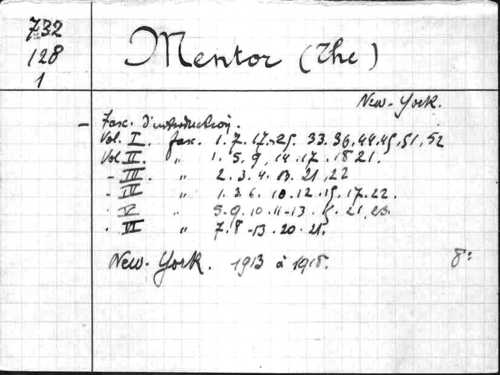 732
128
1
Mentor (The)
New-York.
- Fasc. d'introduction.
Vol. I. fasc. 1. 7. 17. 25. 33. 36. 44. 45. 51. 52
Vol. II. " 1. 5. 9. 14. 17. 18 21.
- III. " 2. 3. 4. 13. 21, 22
- IV " 1. 3. 6. 10. 12. 15. 17. 22.
. V " 5. 9. 10. 11 - 13. 21, 23.
. VI " 7. 8 - 13. 20. 21.
New-York. 1913 à 1918. 8°